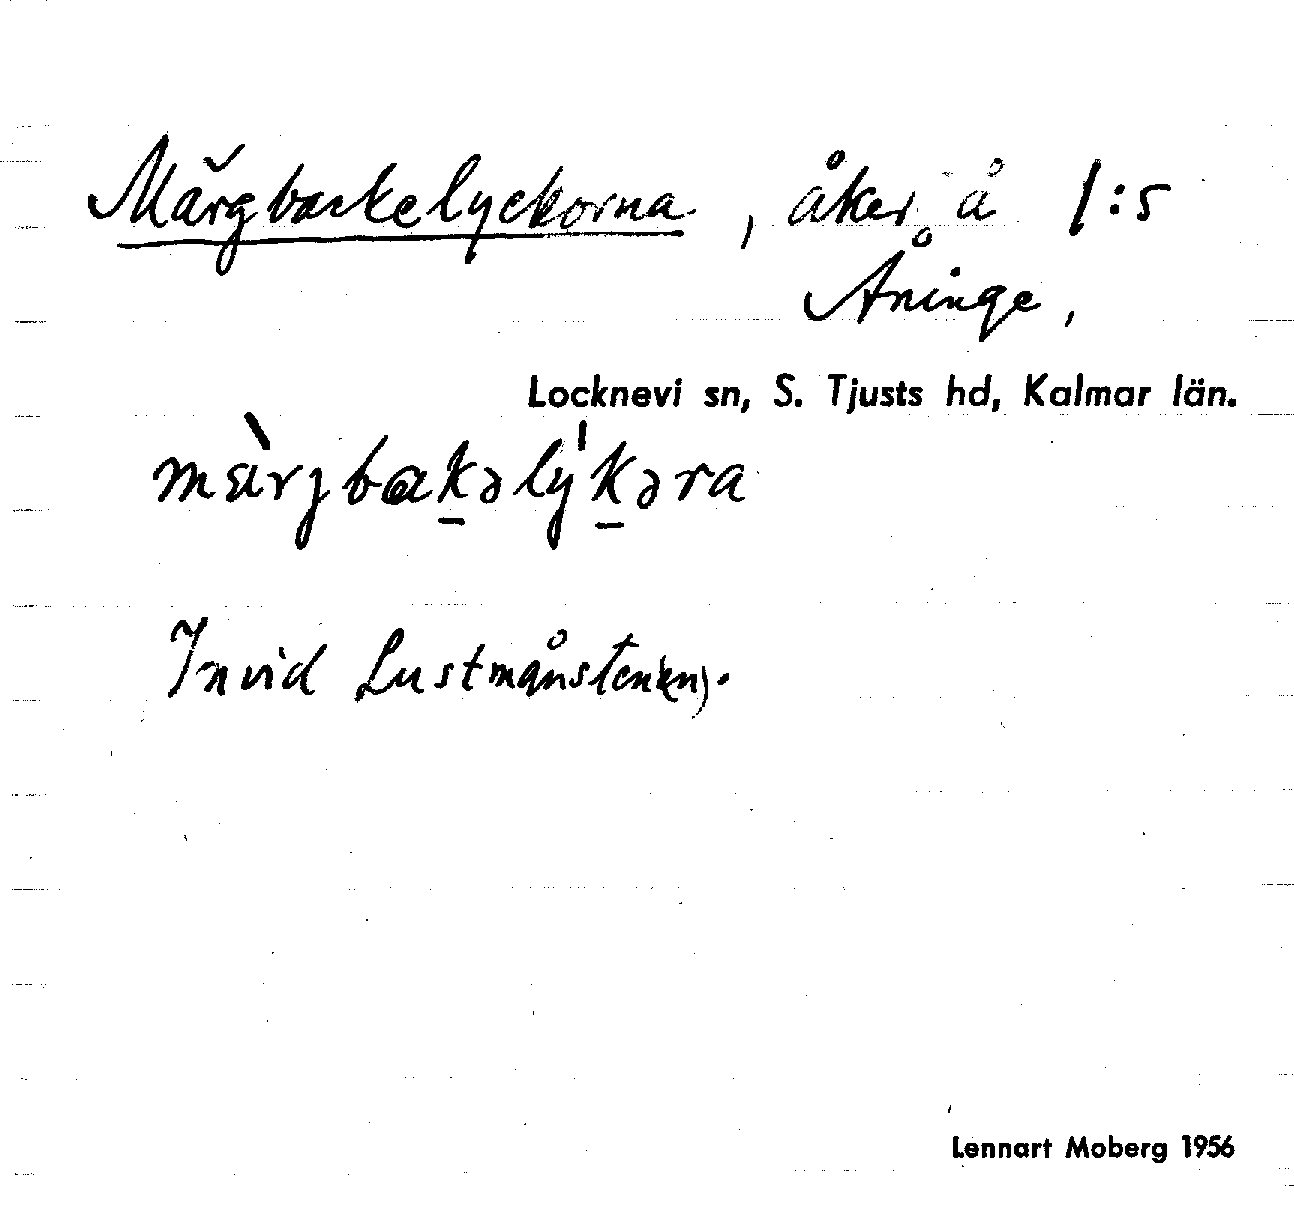 Märgbackelyckorna, åker å 1:5
Åninge,
Locknevi sn, S. Tjusts hd, Kalmar län.
mærjbakəlykəra
Invid Lustmånsten(en).
Lennart Moberg 1956